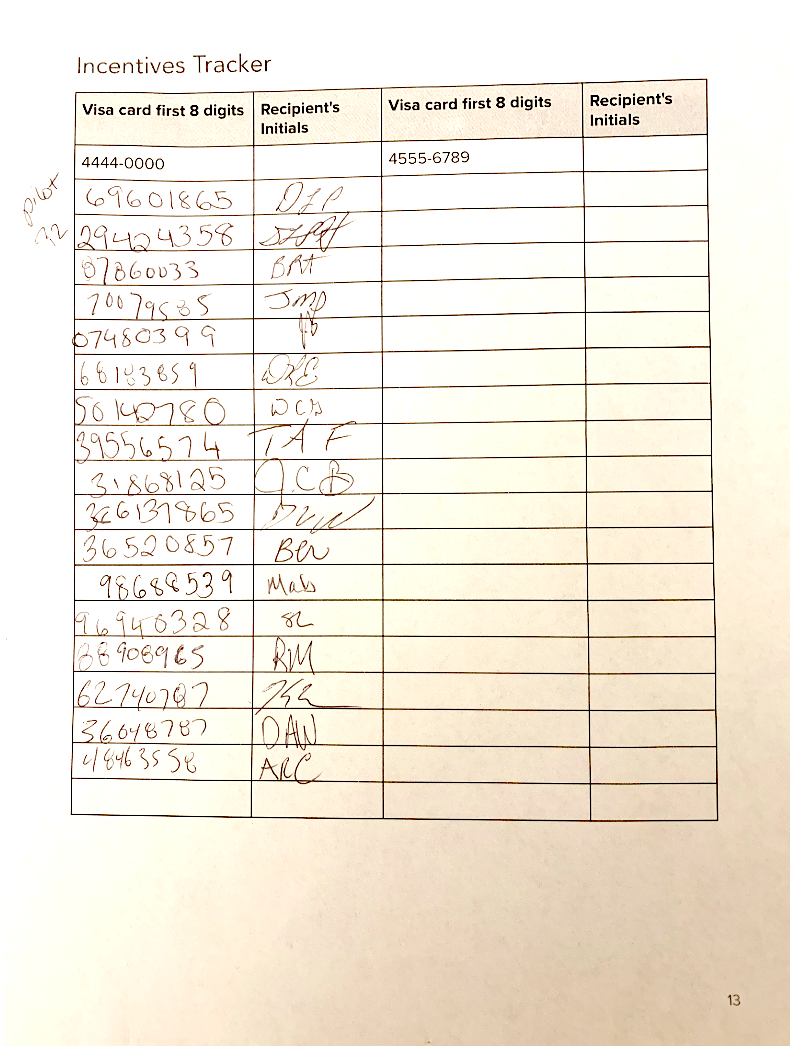 Incentives Tracker
Visa card first 8 digits Recipient's Initials Visa card first 8 digits Recipient's Initials
4444-0000 4555-6789
pilot 69601865 DIP
29424358
87860033 BRA
70079585 JMP
07480399
68183859 DKE
50140780 WCH
39556574 TAF
31868125 JCB
66137865
36520857 Ben
98688539 Mab
96940328 SL
88908965 RM
62740787
36048787 DAW
48463558 ARC
13